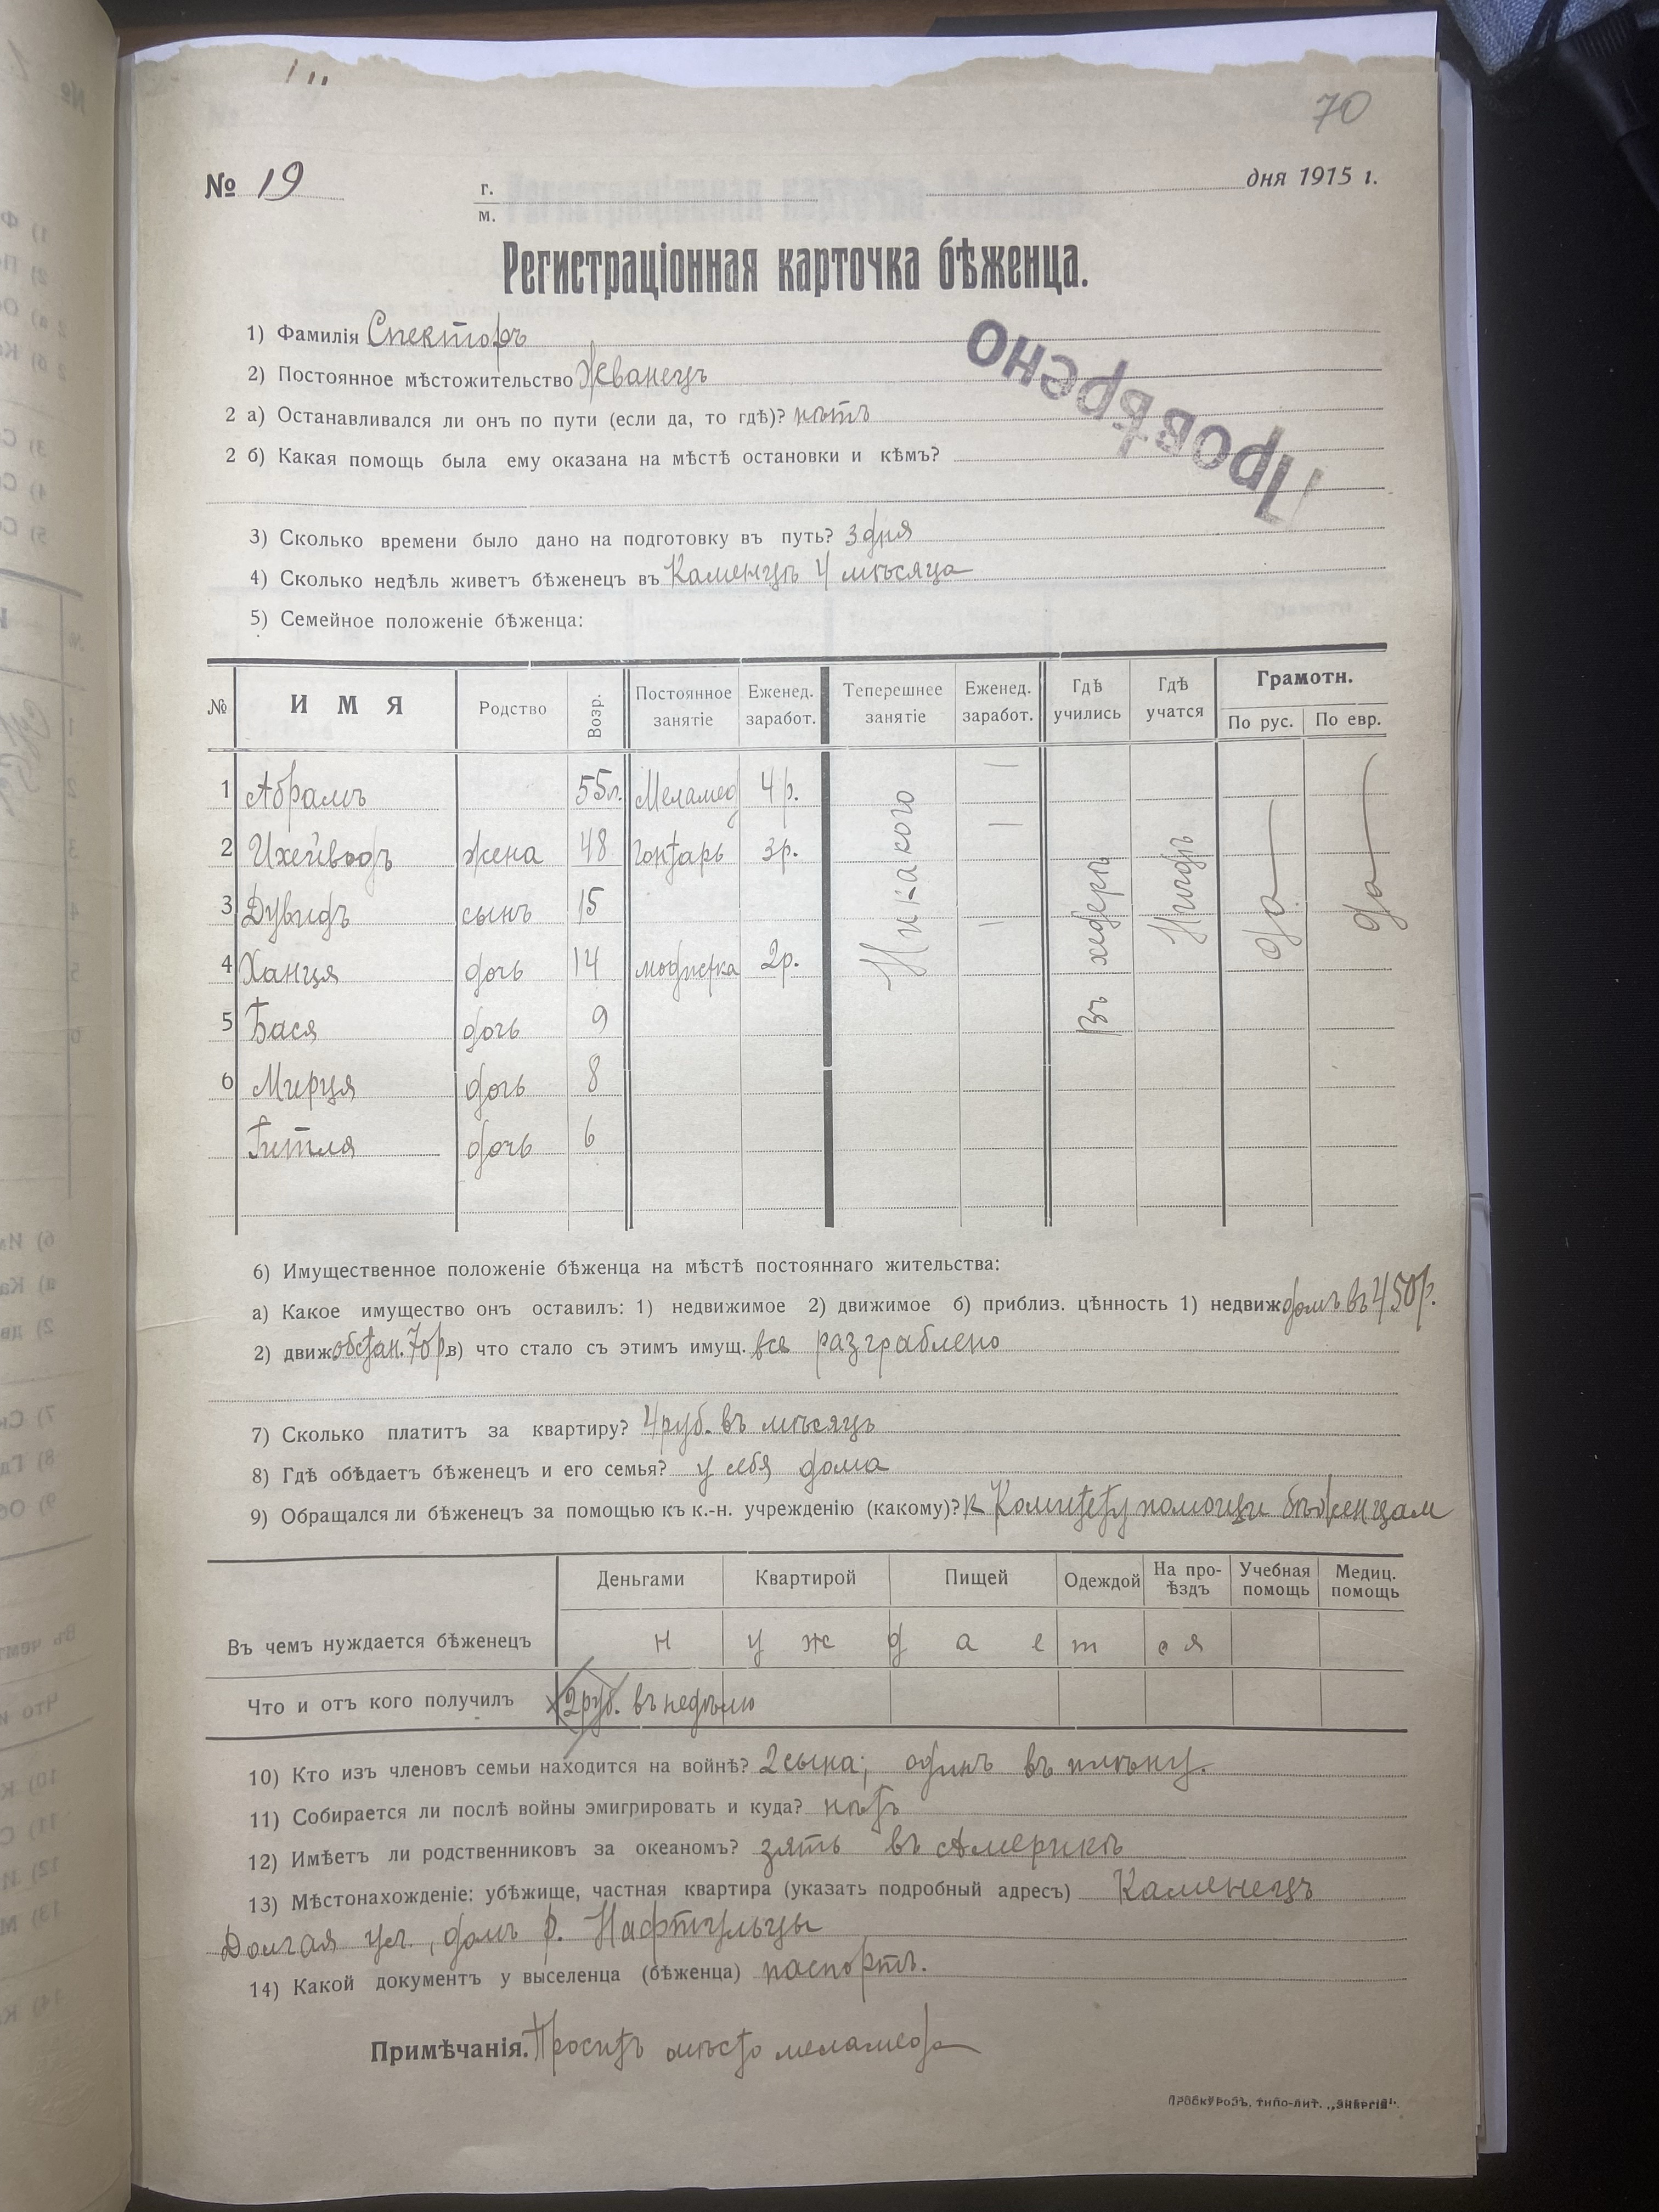 70
№ 19 г. м. дня 1915 г.
Регистраціонная карточка бѣженца.
1) Фамилія Спекторъ
2) Постоянное мѣстожительство Жванецъ
Провѣрено
2 а) Останавливался ли онъ по пути (если да, то гдѣ)? нѣтъ
2 б) Какая помощь была ему оказана на мѣстѣ остановки и кѣмъ?
3) Сколько времени было дано на подготовку въ путь? 3 дня
4) Сколько недѣль живетъ бѣженецъ въ Каменцѣ 4 мѣсяца
5) Семейное положеніе бѣженца:
№ ИМЯ Родство Возр. Постоянное занятіе Еженед. заработ. Теперешнее занятіе Еженед. заработ. Гдѣ учились Гдѣ учатся Грамотн. По рус. По евр.
1 Абрамъ 55 л. Меламед 4 р. —
2 жена 48 3 р. —
3 Дувидъ сынъ 15 —
4 Ханця дочь 14 модистка 2 р.
5 Бася дочь 9
6 Мирця дочь 8
Гитля дочь 6
Никакого
Въ хедерѣ
Нигдѣ
да
да
6) Имущественное положеніе бѣженца на мѣстѣ постояннаго жительства:
а) Какое имущество онъ оставилъ: 1) недвижимое 2) движимое б) приблиз. цѣнность 1) недвиж домъ въ 450 р.
2) движ обстан. 70 р. в) что стало съ этимъ имущ. все разграблено
7) Сколько платитъ за квартиру? 4 руб. въ мѣсяцъ
8) Гдѣ обѣдаетъ бѣженецъ и его семья? у себя дома
9) Обращался ли бѣженецъ за помощью къ к.-н. учрежденію (какому)? к Комитету помощи бѣженцам
Деньгами Квартирой Пищей Одеждой На проѣздъ Учебная помощь Медиц. помощь
Въ чемъ нуждается бѣженецъ н у ж д а е т с я
Что и отъ кого получилъ 2 руб. въ недѣлю
10) Кто изъ членовъ семьи находится на войнѣ? 2 сына; одинъ въ плѣну.
11) Собирается ли послѣ войны эмигрировать и куда? нѣтъ
12) Имѣетъ ли родственниковъ за океаномъ? зять въ Америкѣ
13) Мѣстонахожденіе: убѣжище, частная квартира (указать подробный адресъ) Каменецъ
Долгая ул., домъ р. Нафтульцы
14) Какой документъ у выселенца (бѣженца) паспортъ.
Примѣчанія. Проситъ мѣсто меламеда
ПРОСКУРОВЪ, ТИПО-ЛИТ. „ЭНЕРГІЯ".